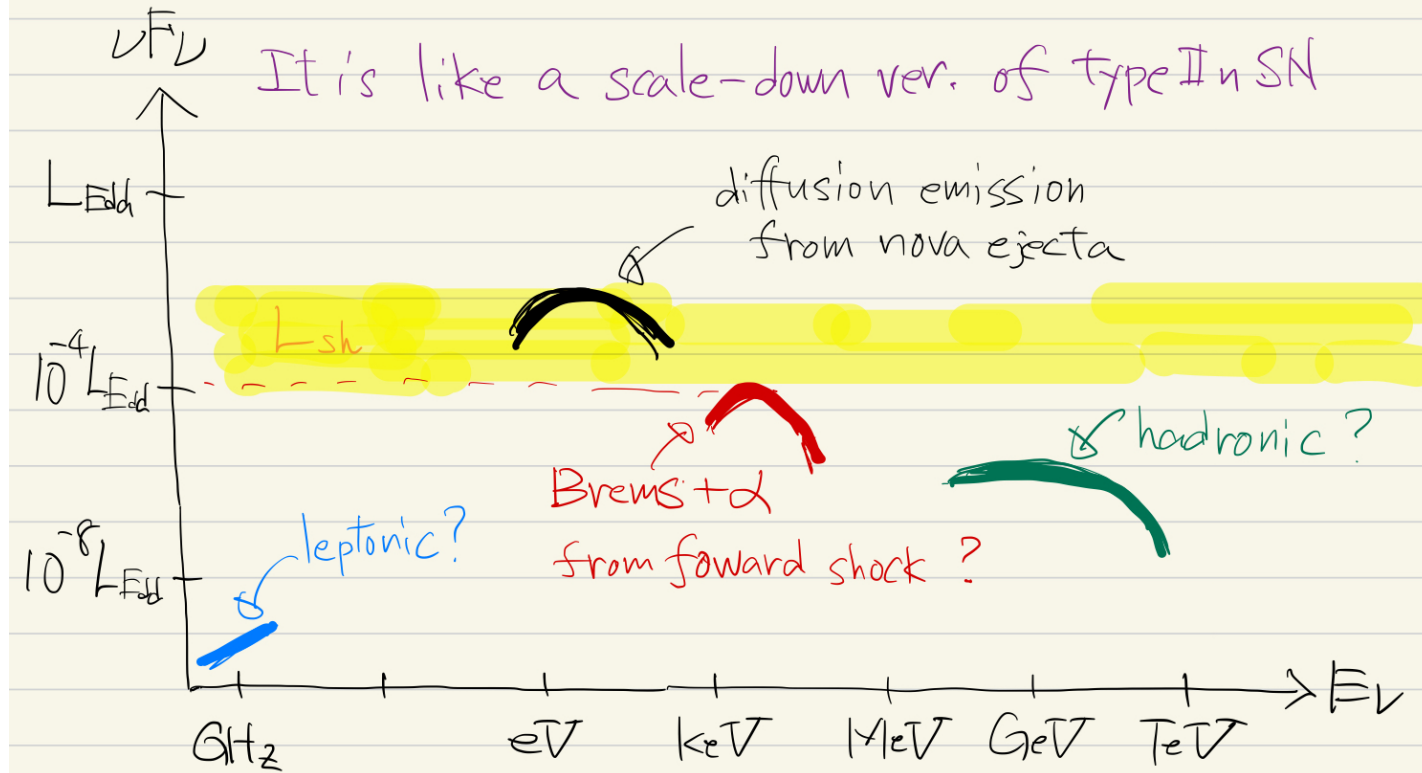 νFν
It is like a scale-down ver. of type IIn SN
LEdd
diffusion emission
from nova ejecta
Lsh
10^-4 LEdd
hadronic?
Brems+α
from foward shock?
leptonic?
10^-8 LEdd
Eν
GHz eV keV MeV GeV TeV